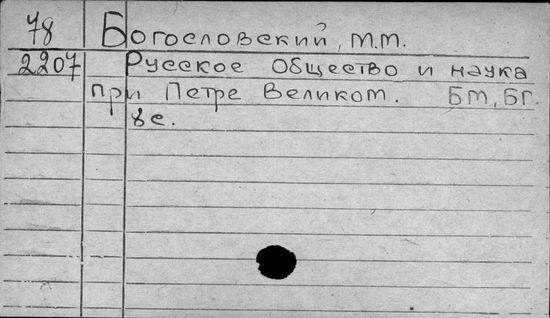 78 Богословский, М.М.
2207 Русское общество и наука
при Петре Великом. Бм, Бг.
8с.